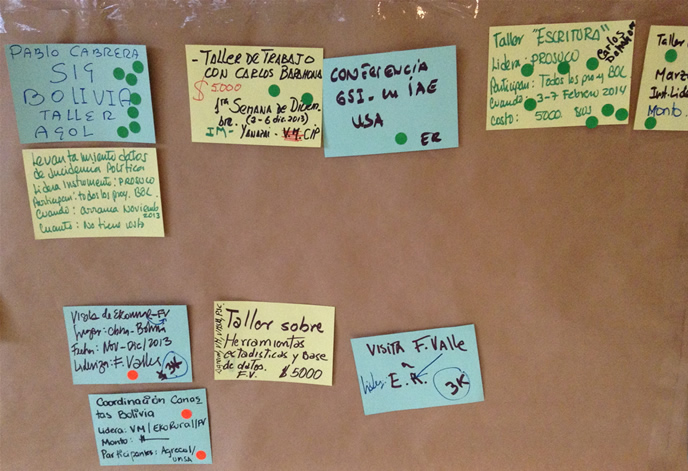 PABLO CABRERA
SIG
BOLIVIA
TALLER
AGOL
- TALLER DE TRABAJO
CON CARLOS BARAHONA
$ 5000
1ra SEMANA DE Diciem
bre. (2-6 dic. 2013)
IM- YANAPAI - V.M. CIP
CONFERENCIA
GSI - en IAE
USA
ER
Taller "ESCRITURA"
Carlos Barahona
Lidera: PROSUCO
Participan: Todos los proy BOL
Cuando: 3-7 Febrero 2014
costo: 5000
Taller
Marzo
Inst. Lide
Monto:
Levantamiento datos
de incidencia Política
Lidera instrumento: PROSUCO
Participan: todos los proy. BOL
Cuando: arranca Noviembre
2013
Cuanto: No tiene
Visita de Ekorural-FV
Lugar: Bolivia
Fecha: NOV-DIC/2013
F. Valles
Taller sobre
Herramientas
estadísticas y Base
de datos.
F.V. $ 5000
VISITA F. VALLE
a
E.R.
3K
Coordinación Canas
tas Bolivia
Lidera: VM/EKORURAL/FV
Monto:
Participantes: Agrecol/
UMSA